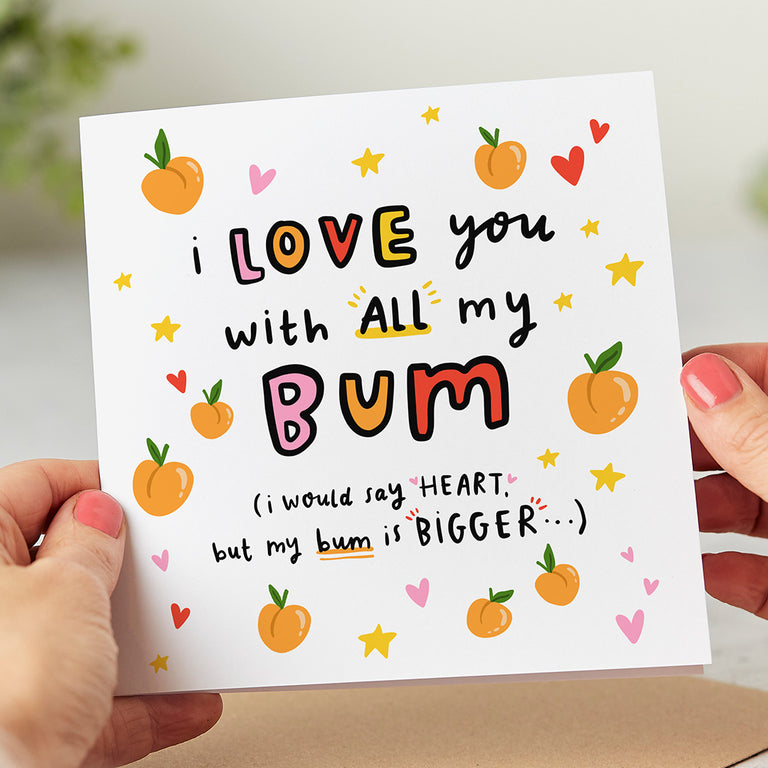 i LOVE you
with ALL my
BUM
(i would say HEART,
but my bum is BIGGER...)